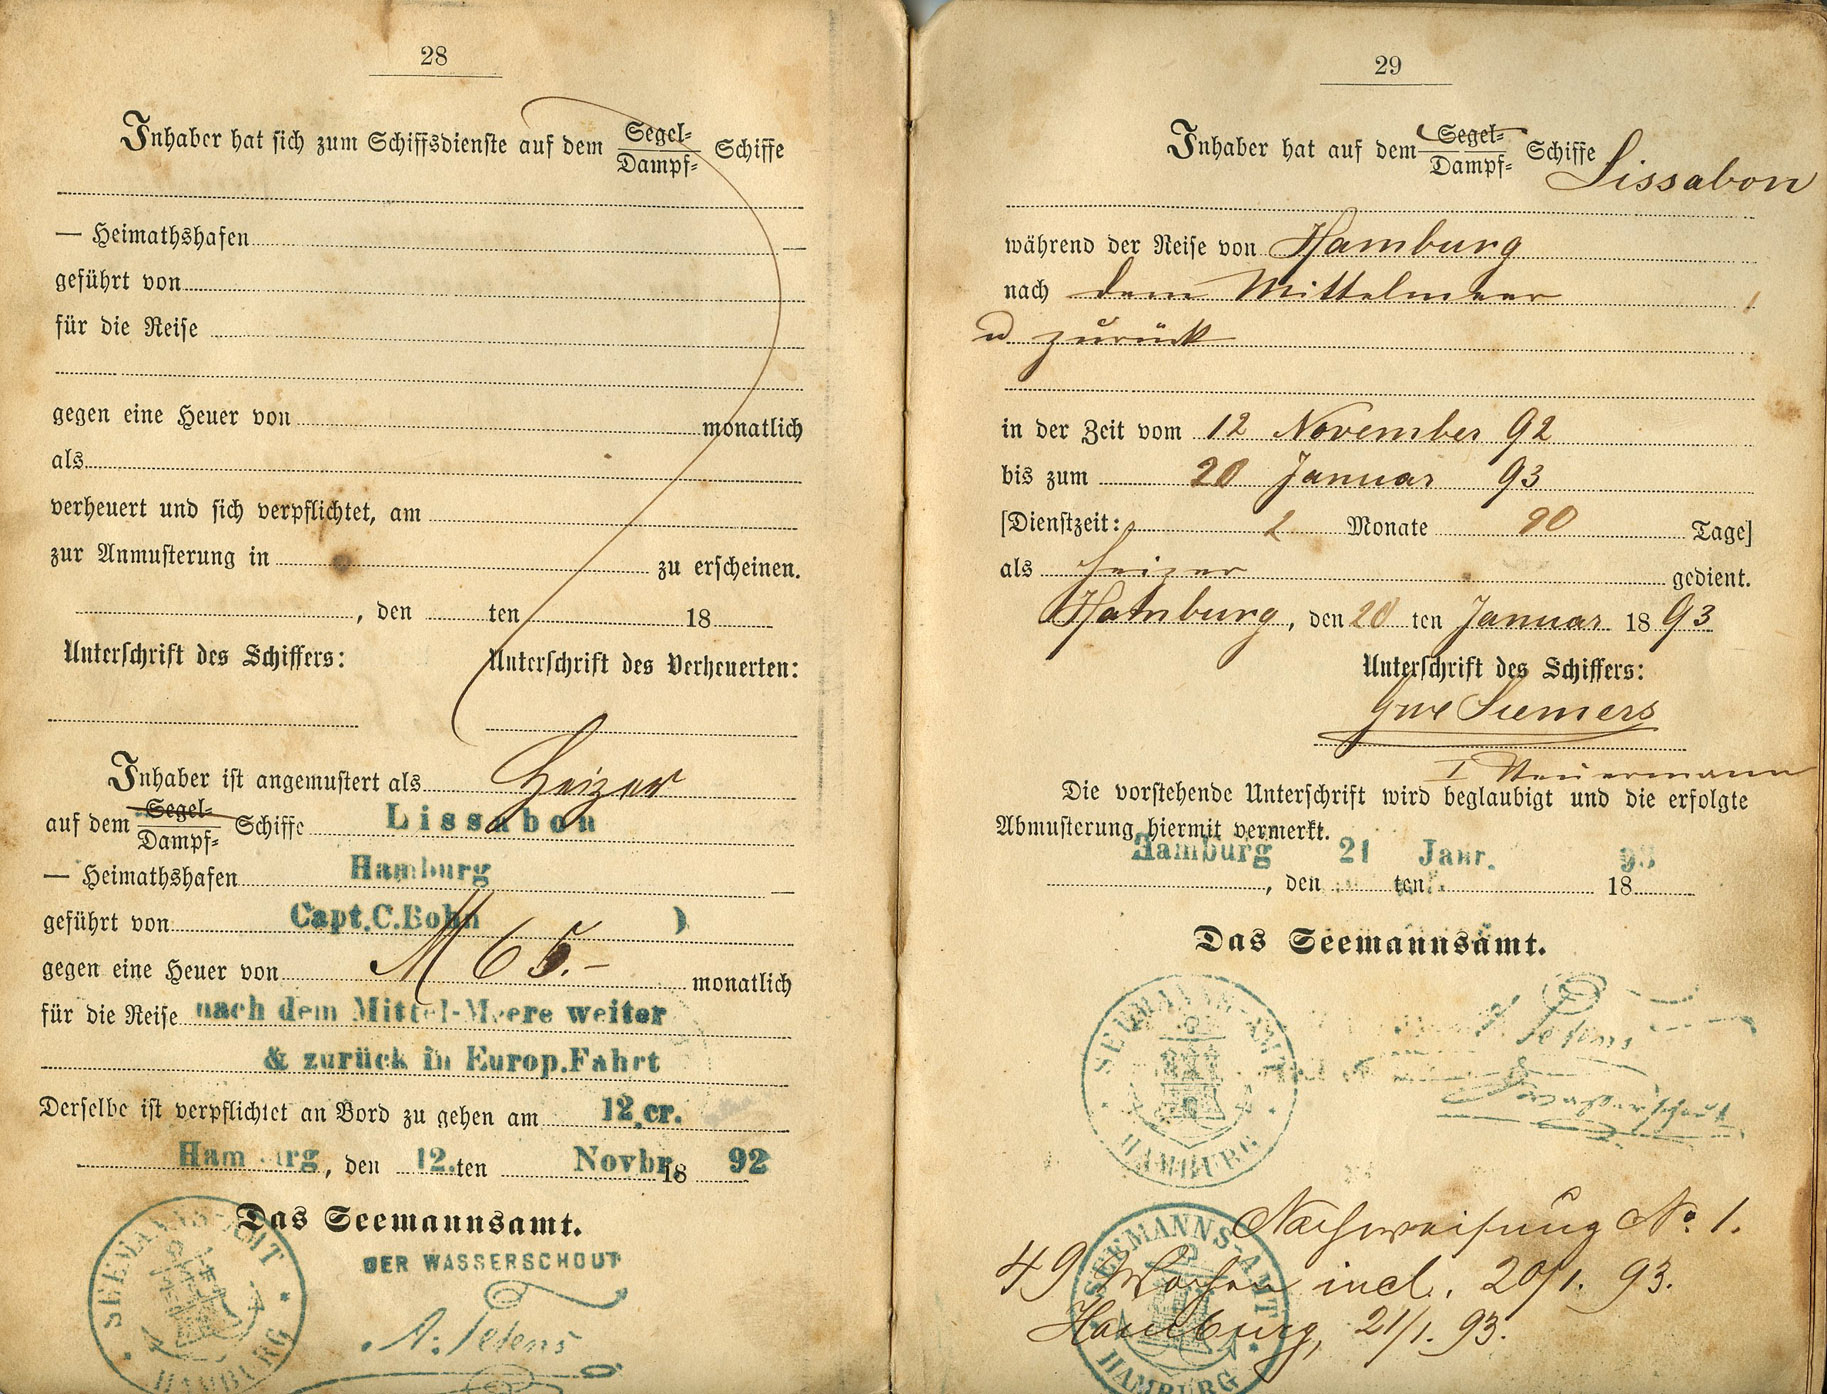 28
Inhaber hat sich zum Schiffsdienste auf dem Segel-/Dampf- Schiffe
— Heimathshafen —
geführt von
für die Reise
gegen eine Heuer von monatlich
als
verheuert und sich verpflichtet, am
zur Anmusterung in zu erscheinen.
, den ten 18
Unterschrift des Schiffers: Unterschrift des Verheuerten:
Inhaber ist angemustert als Heizer
auf dem Segel-/Dampf- Schiffe Lissabon
— Heimathshafen Hamburg —
geführt von Capt. C. Bohn )
gegen eine Heuer von M 65.– monatlich
für die Reise nach dem Mittel-Meere weiter
& zurück in Europ. Fahrt
Derselbe ist verpflichtet an Bord zu gehen am 12. cr.
Hamburg, den 12. ten Novbr. 18 92
Das Seemannsamt.
DER WASSERSCHOUT
A. Petens
SEEMANNS-AMT HAMBURG
29
Inhaber hat auf dem Segel-/Dampf- Schiffe Lissabon
während der Reise von Hamburg
nach dem Mittelmeer
u zurück
in der Zeit vom 12 November 92
bis zum 20 Januar 93
[Dienstzeit: 2 Monate Tage]
als Heizer gedient.
Hamburg, den 20 ten Januar 18 93
Unterschrift des Schiffers:
Siemers
I Steuermann
Die vorstehende Unterschrift wird beglaubigt und die erfolgte
Abmusterung hiermit vermerkt.
Hamburg, den 21 ten Janr. 18 93
Das Seemannsamt.
SEEMANNS-AMT HAMBURG
Petens
Wasserschout
Nachweisung No 1.
49 Wochen incl. 20/1. 93.
Hamburg, 21/1. 93.
SEEMANNS-AMT HAMBURG